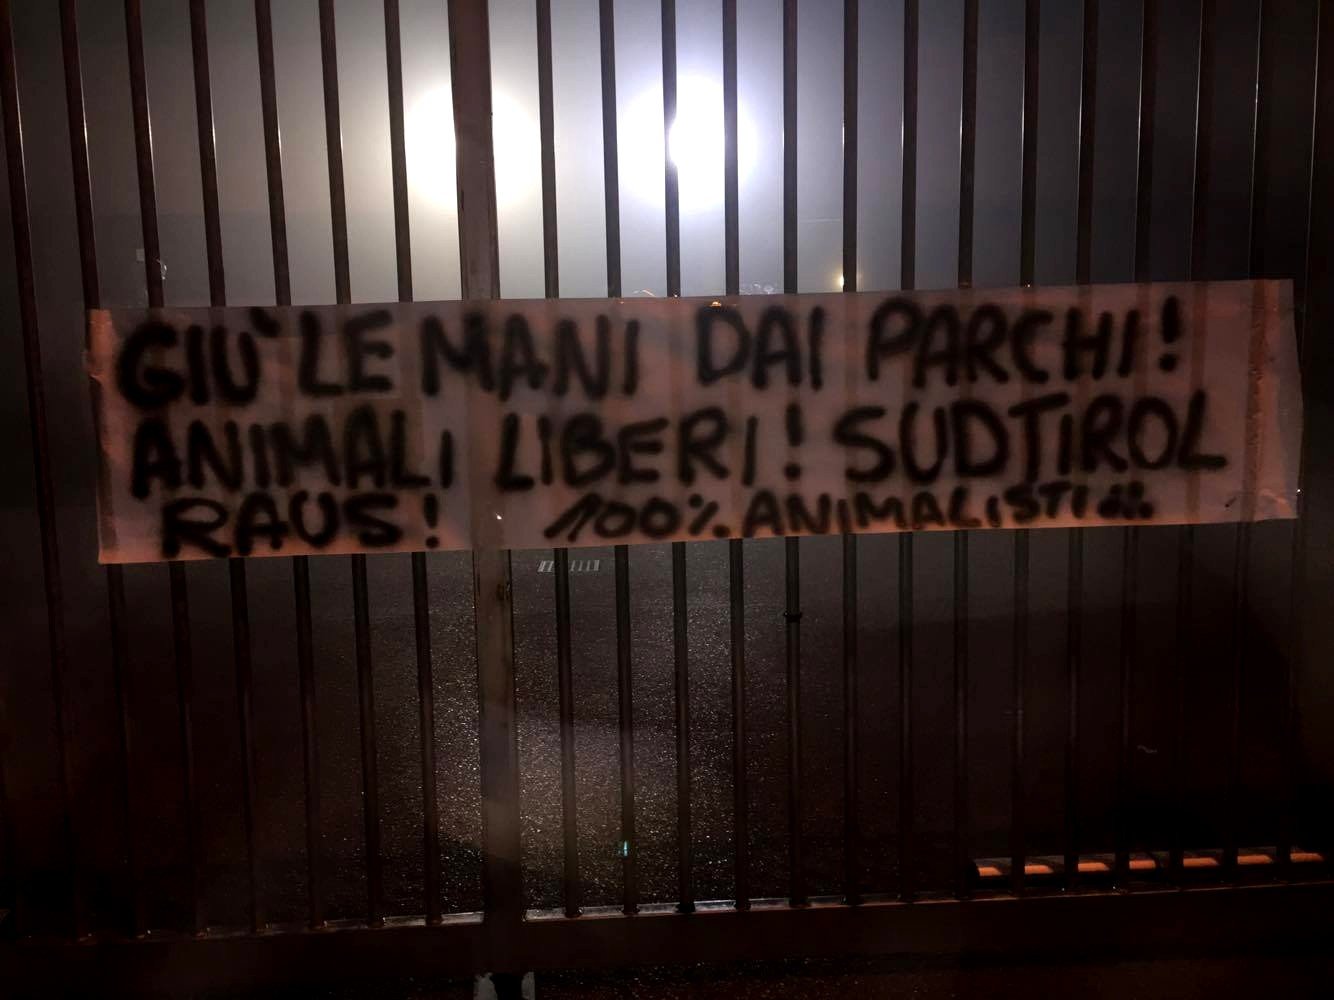 GIU' LE MANI DAI PARCHI!
ANIMALI LIBERI! SUDTIROL
RAUS! 100% ANIMALISTI